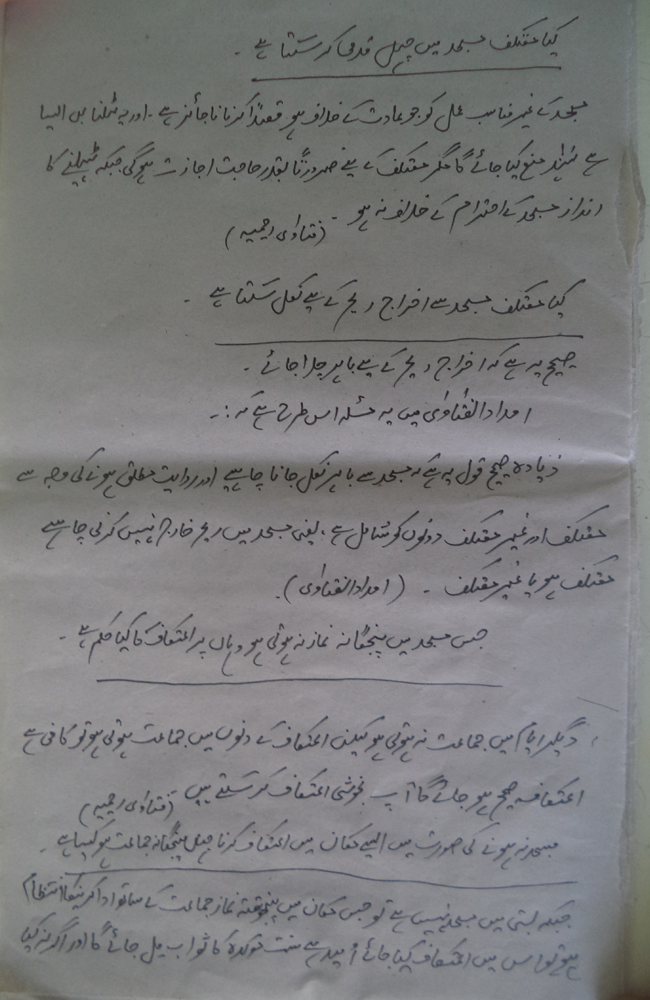 کیا معتکف مسجد میں چہل قدمی کر سکتا ہے ۔
مسجد کے غیر مناسب عمل کو جو عادت کے خلاف ہو قصداً کرنا ناجائز ہے ۔ اور یہ ٹہلنا بھی ایسا
ہے لہٰذا منع کیا جائے گا مگر معتکف کے لیے ضرورتاً بقدر حاجت اجازت ہوگی جبکہ ٹہلنے کا
انداز مسجد کے احترام کے خلاف نہ ہو ۔ (فتاوی رحیمیہ)
کیا معتکف مسجد سے اخراج ریح کے لیے نکل سکتا ہے ۔
صحیح یہ ہے کہ اخراج ریح کے لیے باہر چلا جائے ۔
امداد الفتاوی میں یہ مسئلہ اس طرح ہے کہ :۔
زیادہ صحیح قول یہ ہے کہ مسجد سے باہر نکل جانا چاہیے اور روایت مطلق ہونے کی وجہ سے
معتکف اور غیر معتکف دونوں کو شامل ہے ، یعنی مسجد میں ریح خارج نہیں کرنی چاہیے
معتکف ہو یا غیر معتکف ۔ (امداد الفتاوی) ۔
جس مسجد میں پنجگانہ نماز نہ ہوتی ہو وہاں پر اعتکاف کا کیا حکم ہے ۔
دیگر ایام میں جماعت نہ ہوتی ہو لیکن اعتکاف کے دنوں میں جماعت ہوتی ہو تو کافی ہے
اعتکاف صحیح ہو جائے گا آپ بخوشی اعتکاف کر سکتے ہیں (فتاوی رحیمیہ)
مسجد نہ ہونے کی صورت میں ایسے مکان میں اعتکاف کرنا جہاں پنجگانہ جماعت ہو کیسا ہے
جبکہ بستی میں مسجد نہیں ہے تو جس مکان میں پنجوقتہ نماز جماعت کے ساتھ ادا کرنیکا انتظام
ہے تو اس میں اعتکاف کیا جائے اُمید ہے سنت مؤکدہ کا ثواب مل جائے گا اور اگر نہ کیا